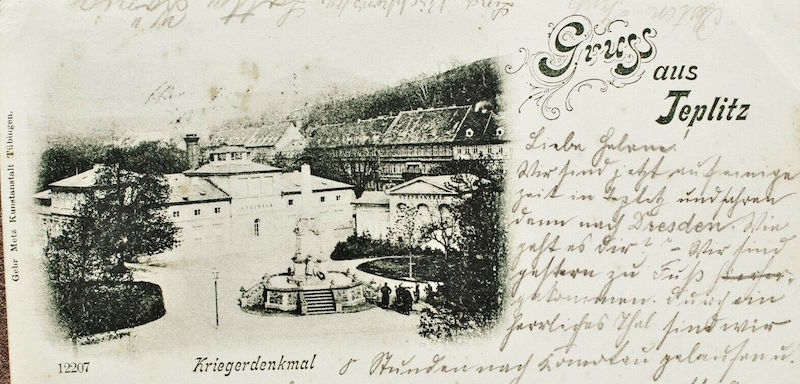 Gruss
aus
Teplitz
Liebe Helene!
Wir sind jetzt auf einige
Zeit in Teplitz und fahren
dann nach Dresden. Wie
geht es Dir? - Wir sind
gestern zu Fuß
gekommen. Durch ein
herrliches Thal sind wir
8 Stunden nach Komotau gelaufen u.
Kriegerdenkmal
12207
Gebr Metz Kunstanstalt Tübingen.